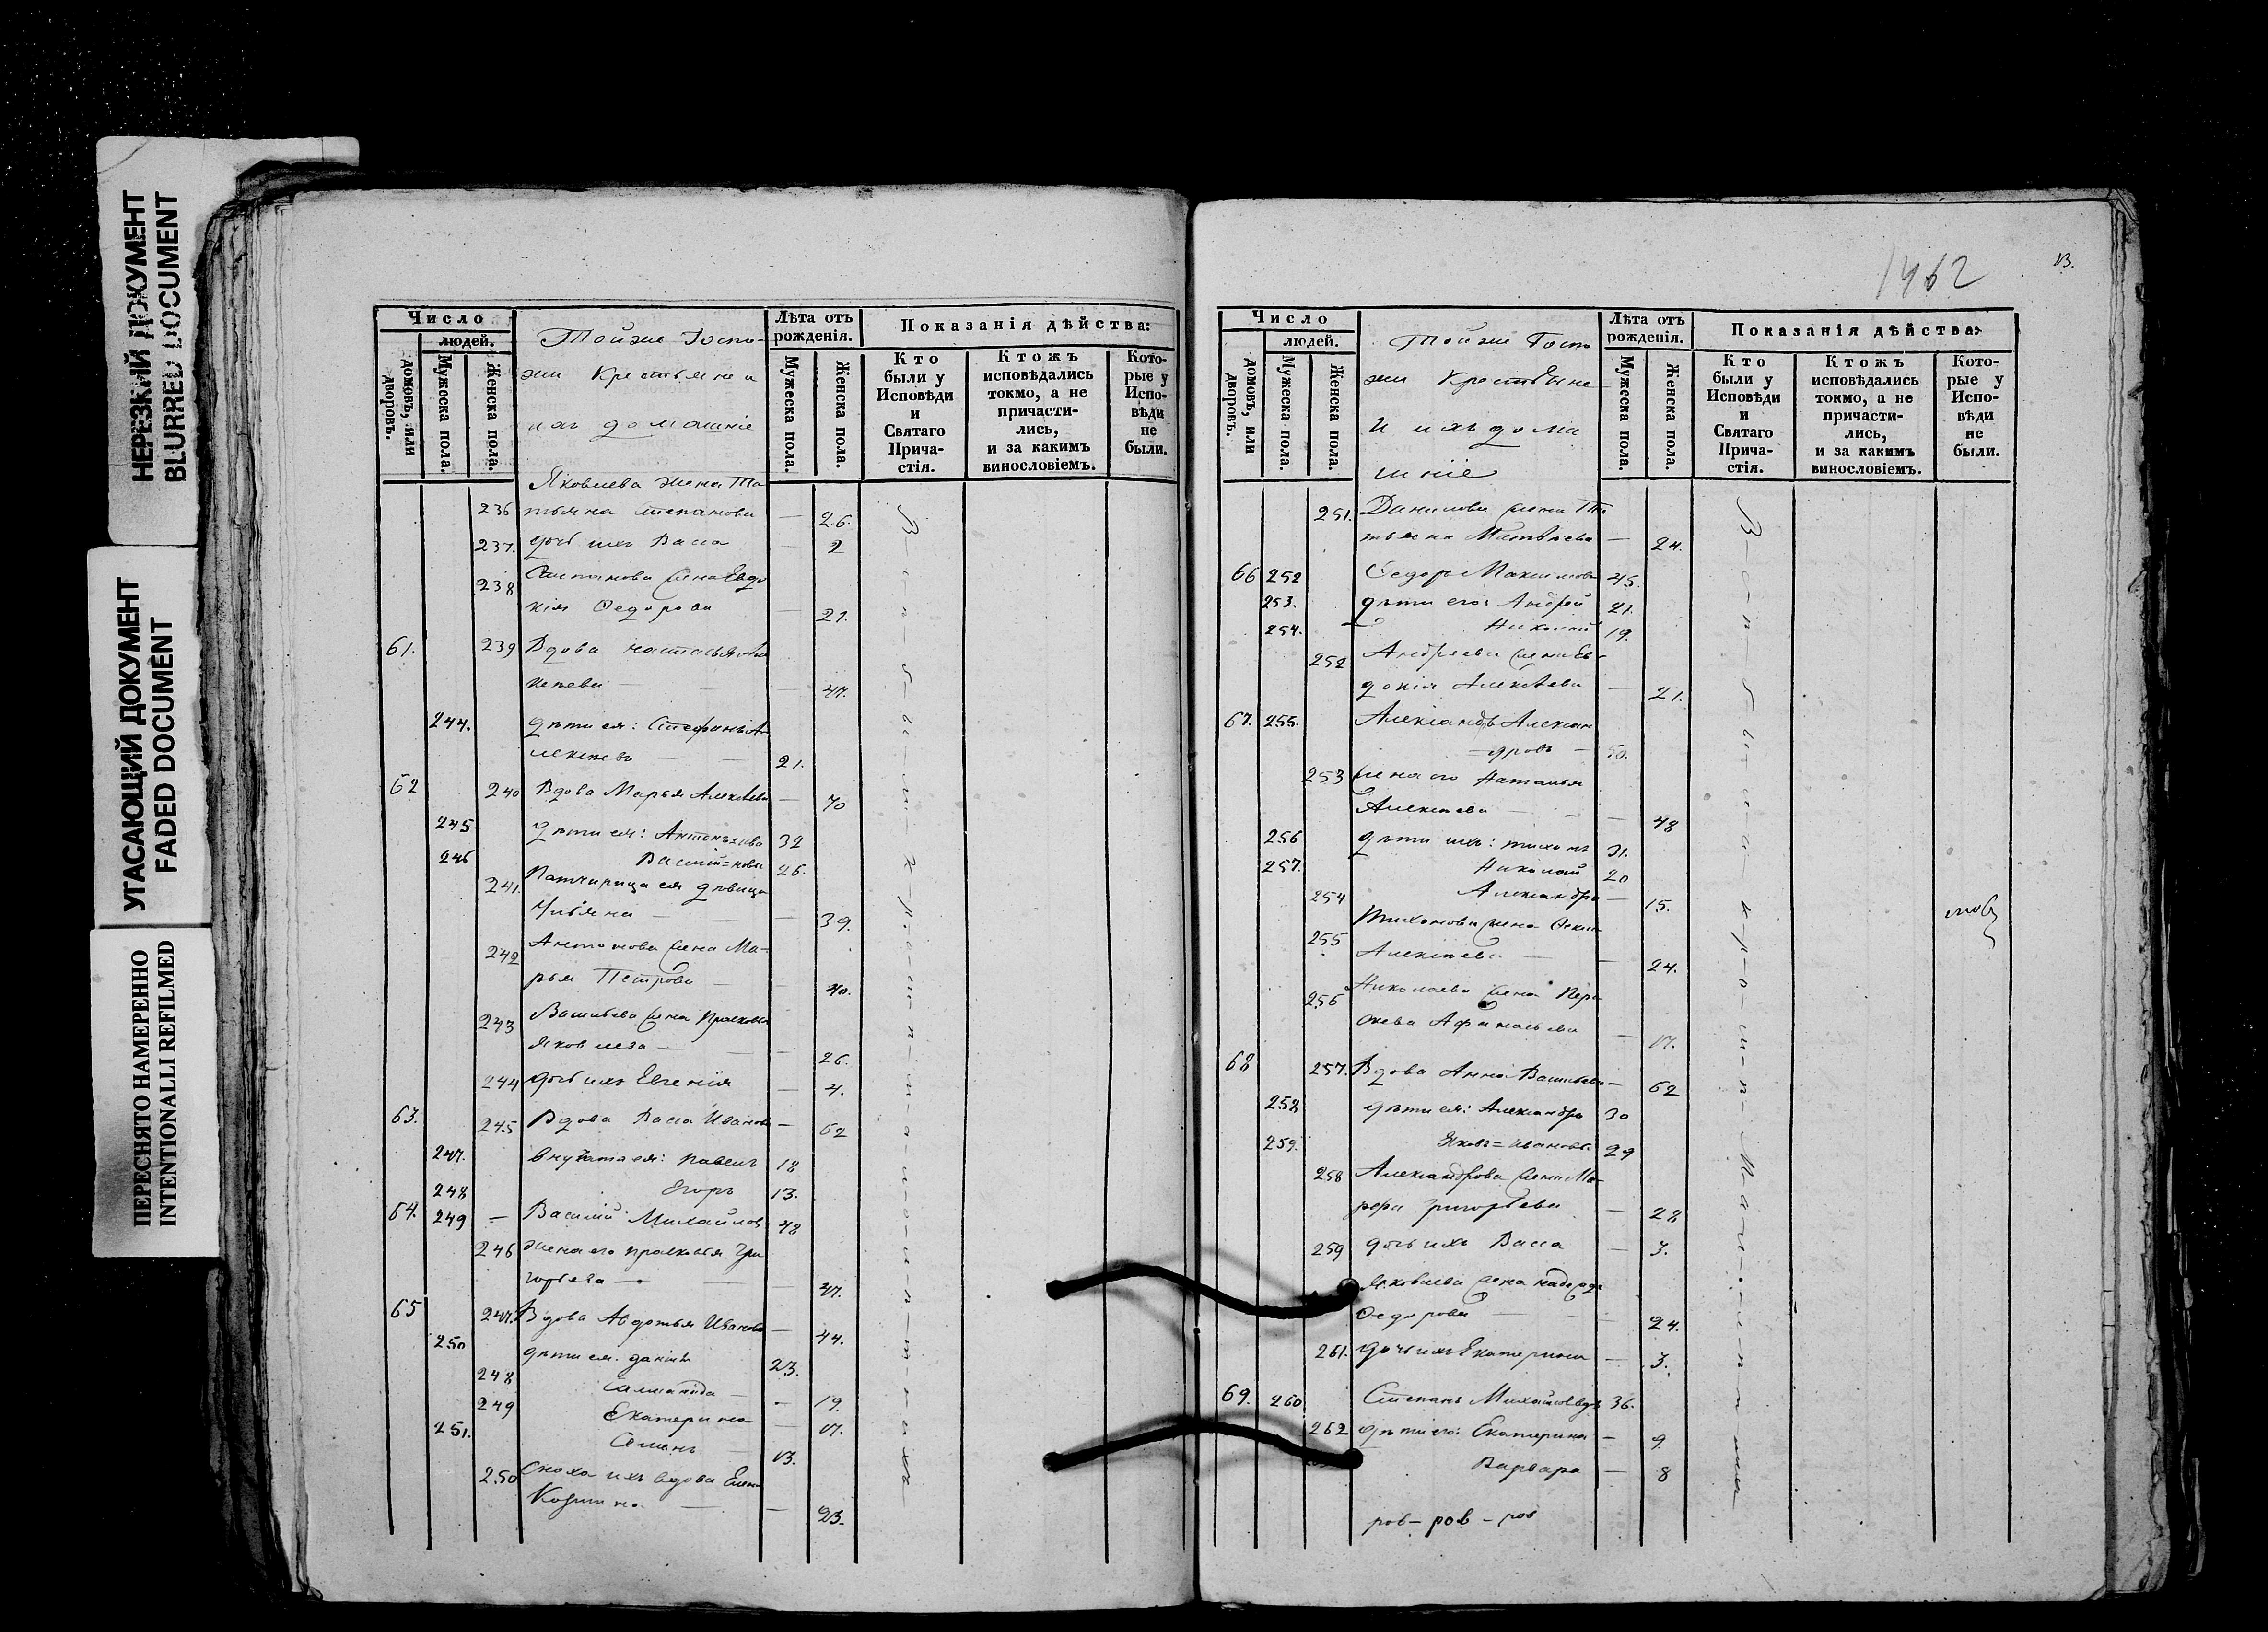 НЕРЕЗКИЙ ДОКУМЕНТ
BLURRED DOCUMENT
УГАСАЮЩИЙ ДОКУМЕНТ
FADED DOCUMENT
ПЕРЕСНЯТО НАМЕРЕННО
INTENTIONALLI REFILMED
Число
людей.
домовъ, или дворовъ.
Мужеска пола.
Женска пола.
Тойже Госпо-
жи Крестьяне и
ихъ домашніе
Лѣта отъ рожденія.
Мужеска пола.
Женска пола.
Показанія дѣйства:
Кто были у Исповѣди и Святаго Прича-стія.
Ктожъ исповѣдались токмо, а не причасти-лись, и за какимъ винословіемъ.
Кото-рые у Испо-вѣди не были.
Яковлева жена Та
236 тьяна Степанова — 26.
237. дочь ихъ Васса — 2
238 Степанова жена Евдо
кія Ѳедорова — 21.
61. 239 Вдова Настасья
47.
244. дѣти ея: Стефанъ А-
лексѣевъ — 21.
62 240 Вдова Марья Алексѣева — 70
245 дѣти ея: Антонъ 32
246 Василій 26.
241. Падчерица ея дѣвица
Ульяна — 39.
242 Антонова жена Ма-
рья Петрова — 40.
243 Васильева жена Прасковья
Яковлева — 26.
244 дочь ихъ Евгенія — 4.
63. 245 Вдова Васса Иванова — 62
247. внучата ея: Павелъ 18
248 Егоръ 13.
64. 249 — Василій Михайловъ 48
246 жена его Прасковья Гри
горьева — 47.
65 247. Вдова Авдотья Иванова — 44.
250 дѣти ея: Данилъ 23.
248 19.
249 Екатерина — 17.
251. Семенъ — 13.
250 Сноха ихъ вдова Елена
Козмина — 23.
1462
13.
Число
людей.
домовъ, или дворовъ.
Мужеска пола.
Женска пола.
Тойже Госпо
жи Крестьяне
и ихъ дома
шніе
Лѣта отъ рожденія.
Мужеска пола.
Женска пола.
Показанія дѣйства:
Кто были у Исповѣди и Святаго Прича-стія.
Ктожъ исповѣдались токмо, а не причасти-лись, и за какимъ винословіемъ.
Кото-рые у Испо-вѣди не были.
251. Данилова жена Та
тьяна Матвѣева — 24.
66 252 Ѳедоръ Максимовъ 45.
253. дѣти его: Андрей 21.
254. Николай 19.
252 Андреева жена Ев-
докія Алексѣева — 21.
67. 255. Александръ Алексан
дровъ — 50.
253 жена его Наталья
Алексѣева — 48
256 дѣти ихъ: Тихонъ 31.
257. Николай 20
254 Александра — 15.
255 Тихонова жена
Алексѣева — 24.
256 Николаева жена Пара
скева Афанасьева — 17.
68 257. Вдова Анна Васильева — 62
258 дѣти ея: Александръ 30
259. Яковъ = Ивановы. 29
258 Александрова жена Ма-
рѳа Григорьева — 28
259 дочь ихъ Васса — 3.
Яковлева жена Надежда
Ѳедорова — 24.
261. дочь ихъ Екатерина — 3.
69. 260 Степанъ Михайловъ 36.
262 дѣти его: Екатерина — 9
Варвара — 8
ров — ров — ров